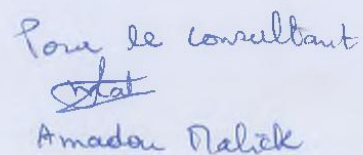 Pour le consultant
Amadou Malick